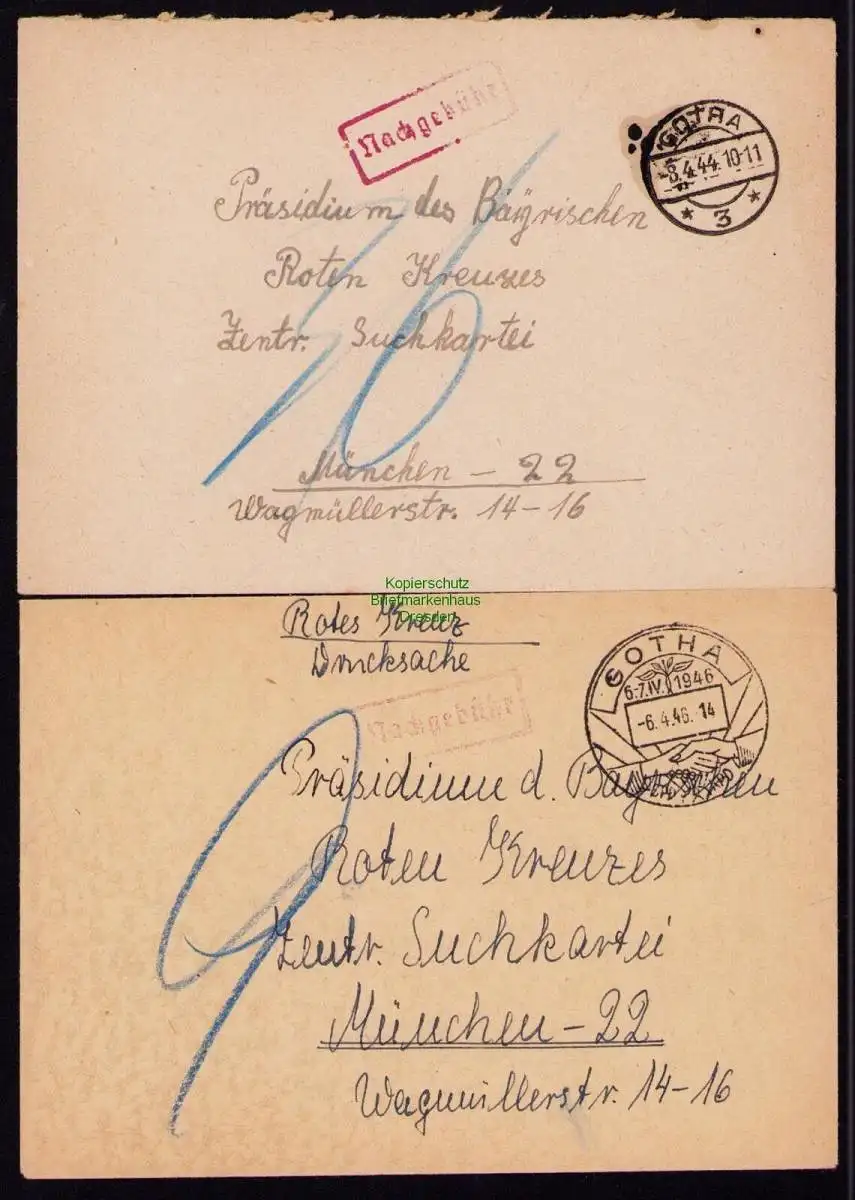 Nachgebühr
GOTHA
8.4.44.10-11
* 3 *
36
Präsidium des Bayrischen
Roten Kreuzes
Zentr. Suchkartei
München - 22
Wagmüllerstr. 14-16
Kopierschutz
Briefmarkenhaus
Dresden
Rotes Kreuz
Drucksache
Nachgebühr
GOTHA
6.-7.IV. 1946
-6.4.46.14
9
Präsidium d. Bayrischen
Roten Kreuzes
Zentr. Suchkartei
München - 22
Wagmüllerstr. 14-16